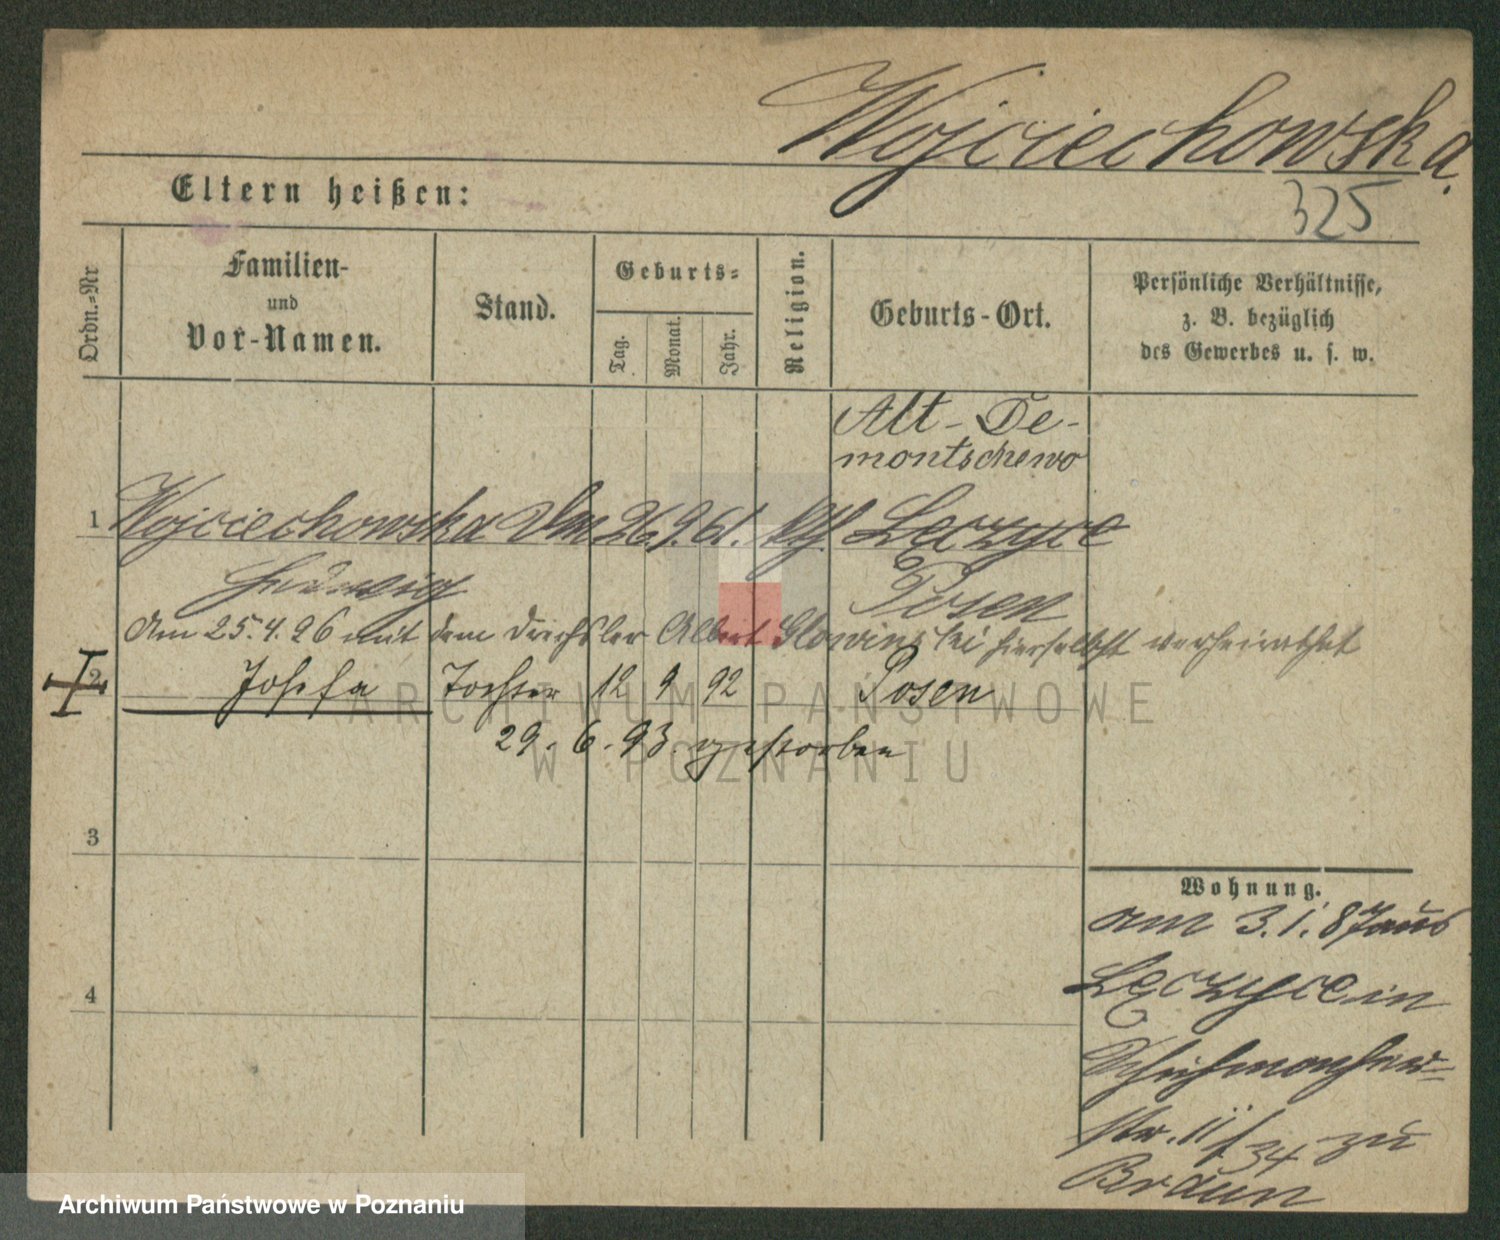 Wojciechowska.
Eltern heißen:
325
Ordn.-Nr
Familien-
und
Vor-Namen.
Stand.
Geburts-
Tag.
Monat.
Jahr.
Religion.
Geburts-Ort.
Persönliche Verhältnisse,
z. B. bezüglich
des Gewerbes u. s. w.
Alt-De-
montschewo
1 Wojciechowska 26. 9. 61. kth. Lęczyce
Hedwig Posen
Am 25.4.96 mit dem Drechsler Albert Glowinski hierselbst verheirathet
2 Josefa Tochter 12 9 92 Posen
29. 6. 93. gestorben
3
4
Wohnung.
am 3.1.87 aus
Lęczyce in
Schuhmacher-
str. 11/34 zu
Braun
ARCHIWUM PAŃSTWOWE
W POZNANIU
Archiwum Państwowe w Poznaniu